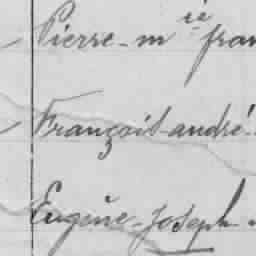 Pierre-m ie fran
François-andré.
Eugène-Joseph.